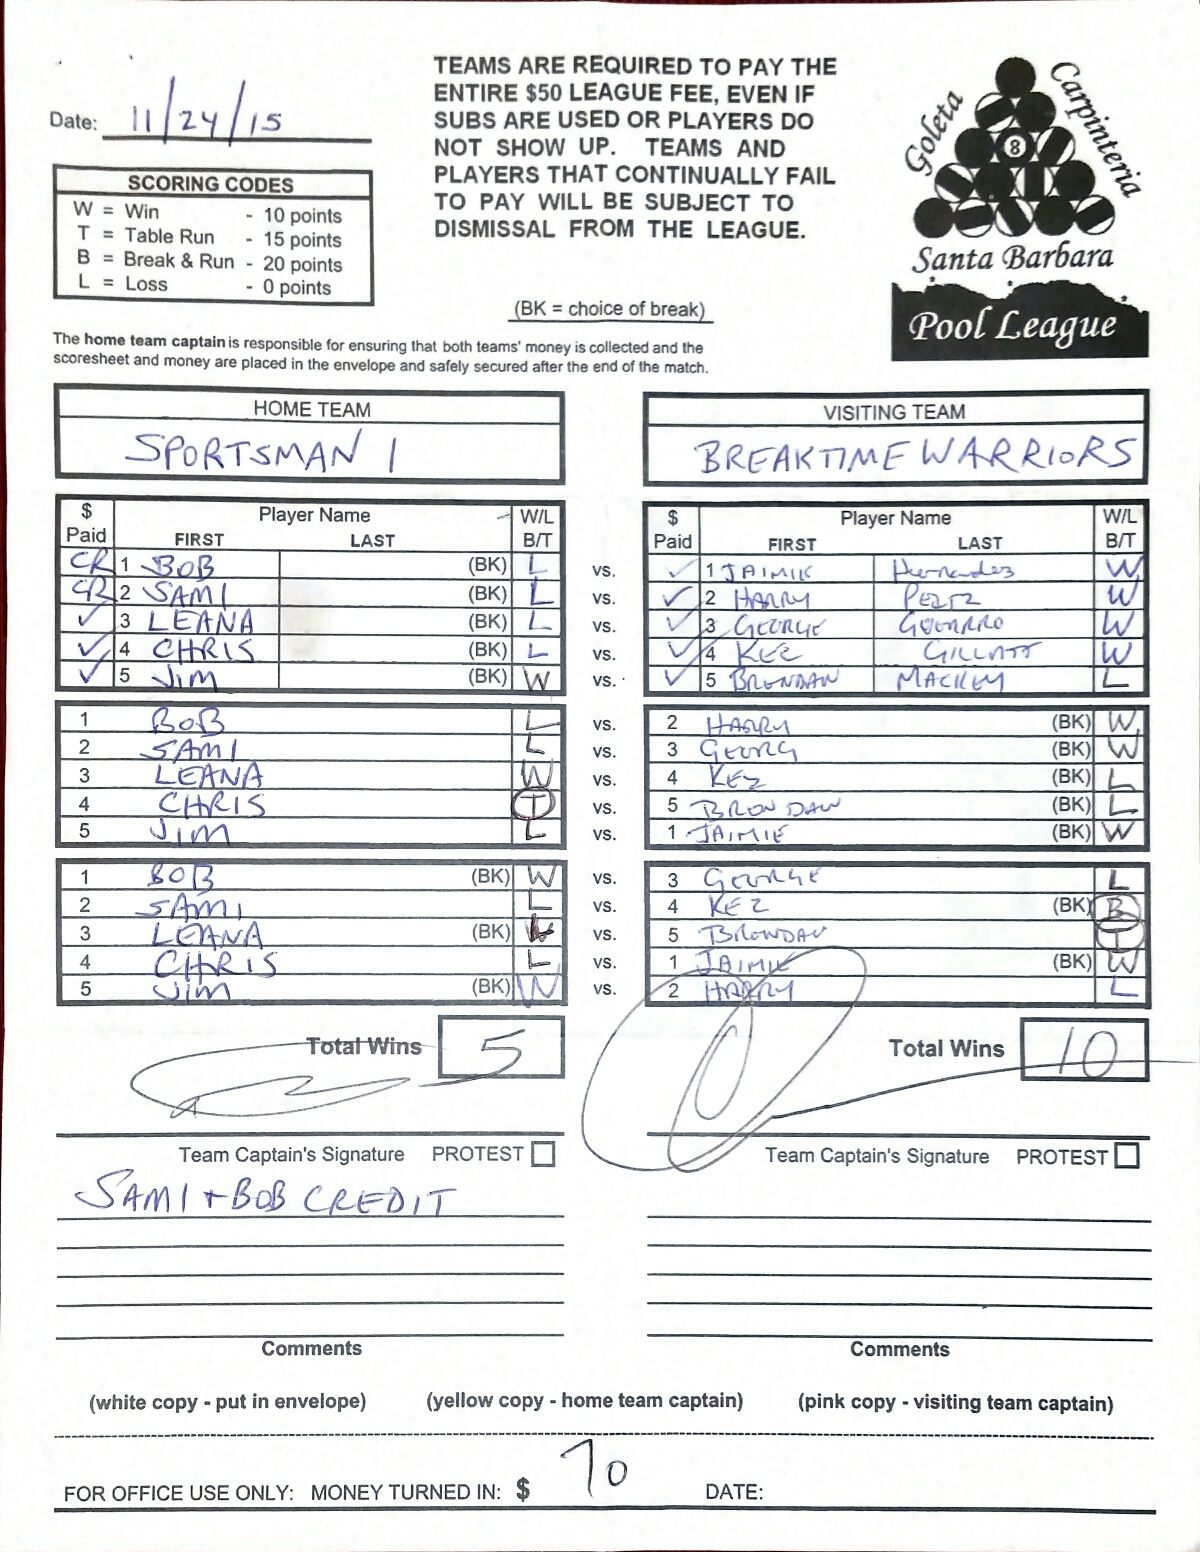 Date: 11/24/15
TEAMS ARE REQUIRED TO PAY THE
ENTIRE $50 LEAGUE FEE, EVEN IF
SUBS ARE USED OR PLAYERS DO
NOT SHOW UP. TEAMS AND
PLAYERS THAT CONTINUALLY FAIL
TO PAY WILL BE SUBJECT TO
DISMISSAL FROM THE LEAGUE.
Goleta
Carpinteria
8
Santa Barbara
Pool League
SCORING CODES
W = Win - 10 points
T = Table Run - 15 points
B = Break & Run - 20 points
L = Loss - 0 points
(BK = choice of break)
The home team captain is responsible for ensuring that both teams' money is collected and the
scoresheet and money are placed in the envelope and safely secured after the end of the match.
HOME TEAM VISITING TEAM
SPORTSMAN 1 BREAKTIME WARRIORS
$ Paid Player Name FIRST LAST W/L B/T $ Paid Player Name FIRST LAST W/L B/T
CR 1 BOB (BK) L vs. ✓ 1 JAIMIE Hernandez W
CR 2 SAMI (BK) L vs. ✓ 2 HARRY PERTZ W
✓ 3 LEANA (BK) L vs. ✓ 3 GEORGE GUERRRO W
✓ 4 CHRIS (BK) L vs. ✓ 4 KEZ GILLATT W
✓ 5 JIM (BK) W vs. ✓ 5 BRENDAN MACKEY L
1 BOB L vs. 2 HARRY (BK) W
2 SAMI L vs. 3 GEORG (BK) W
3 LEANA W vs. 4 KEZ (BK) L
4 CHRIS T vs. 5 BRENDAN (BK) L
5 JIM L vs. 1 JAIMIE (BK) W
1 BOB (BK) W vs. 3 GEORGE L
2 SAMI L vs. 4 KEZ (BK) B
3 LEANA (BK) L vs. 5 BRENDAN T
4 CHRIS L vs. 1 JAIMIE (BK) W
5 JIM (BK) W vs. 2 HARRY L
Total Wins 5 Total Wins 10
Team Captain's Signature PROTEST Team Captain's Signature PROTEST
SAMI + BOB CREDIT
Comments Comments
(white copy - put in envelope) (yellow copy - home team captain) (pink copy - visiting team captain)
FOR OFFICE USE ONLY: MONEY TURNED IN: $ 70 DATE: